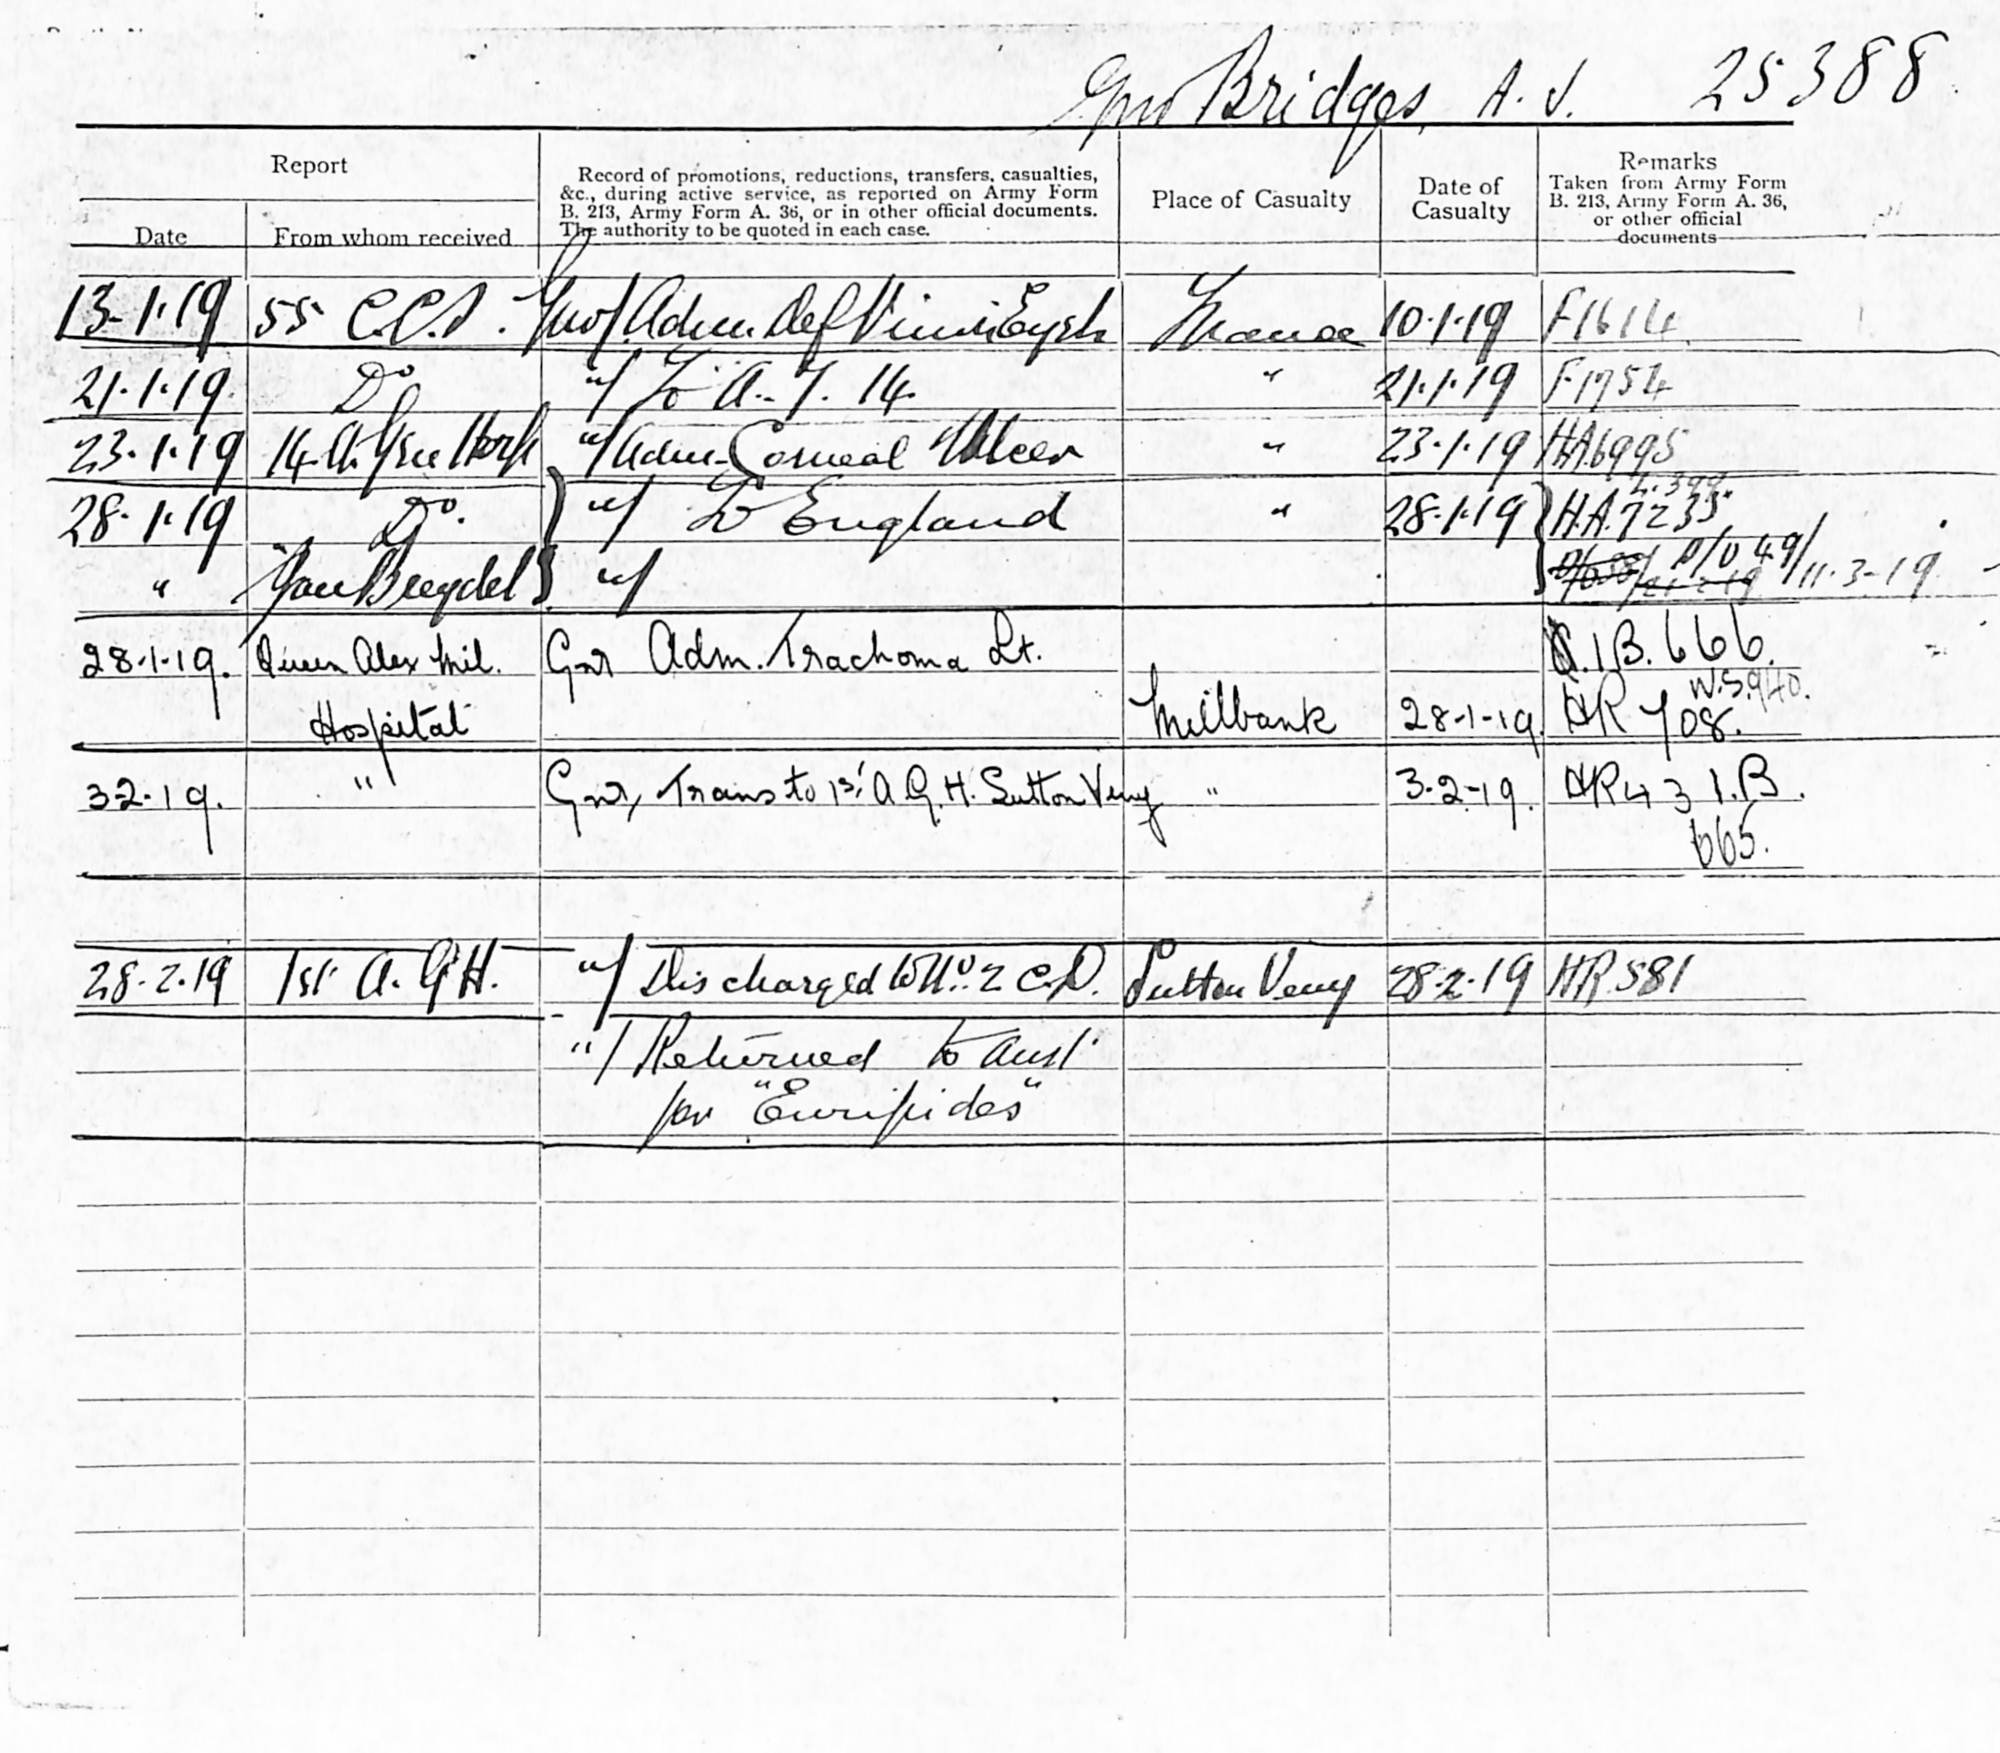 Gnr Bridges, A. J. 25388
Report
Date
From whom received
Record of promotions, reductions, transfers, casualties,
&c., during active service, as reported on Army Form
B. 213, Army Form A. 36, or in other official documents.
The authority to be quoted in each case.
Place of Casualty
Date of
Casualty
Remarks
Taken from Army Form
B. 213, Army Form A. 36,
or other official
documents
13-1-19 55 C.C.S. Gnr/. Adm. Def Vision Eyes France 10.1.19 F1614
21.1.19 Do "/ To A.T. 14. " 21.1.19 F1754
23.1.19 14. Hosp "/ Adm. Corneal Ulcer " 23.1.19 HA6995
28.1.19 Do. "/ To England " 28.1.19 H.A.7233
" Jan Breydel "/ D/O 49/11.3-19
28.1.19. Queen Alex Mil. Gnr Adm. Trachoma Lt. I.B. 666.
W.5940.
Hospital Millbank 28-1-19. AR 708.
3.2.19. " Gnr, Trans to 1st A.G.H. Sutton Veny " 3.2-19. AR43 I.B.
665.
28.2.19 1st A.G.H. "/ Discharged to No. 2 C.D. Sutton Veny 28.2.19 HR.581
"/ Returned to Aust
per "Euripides"